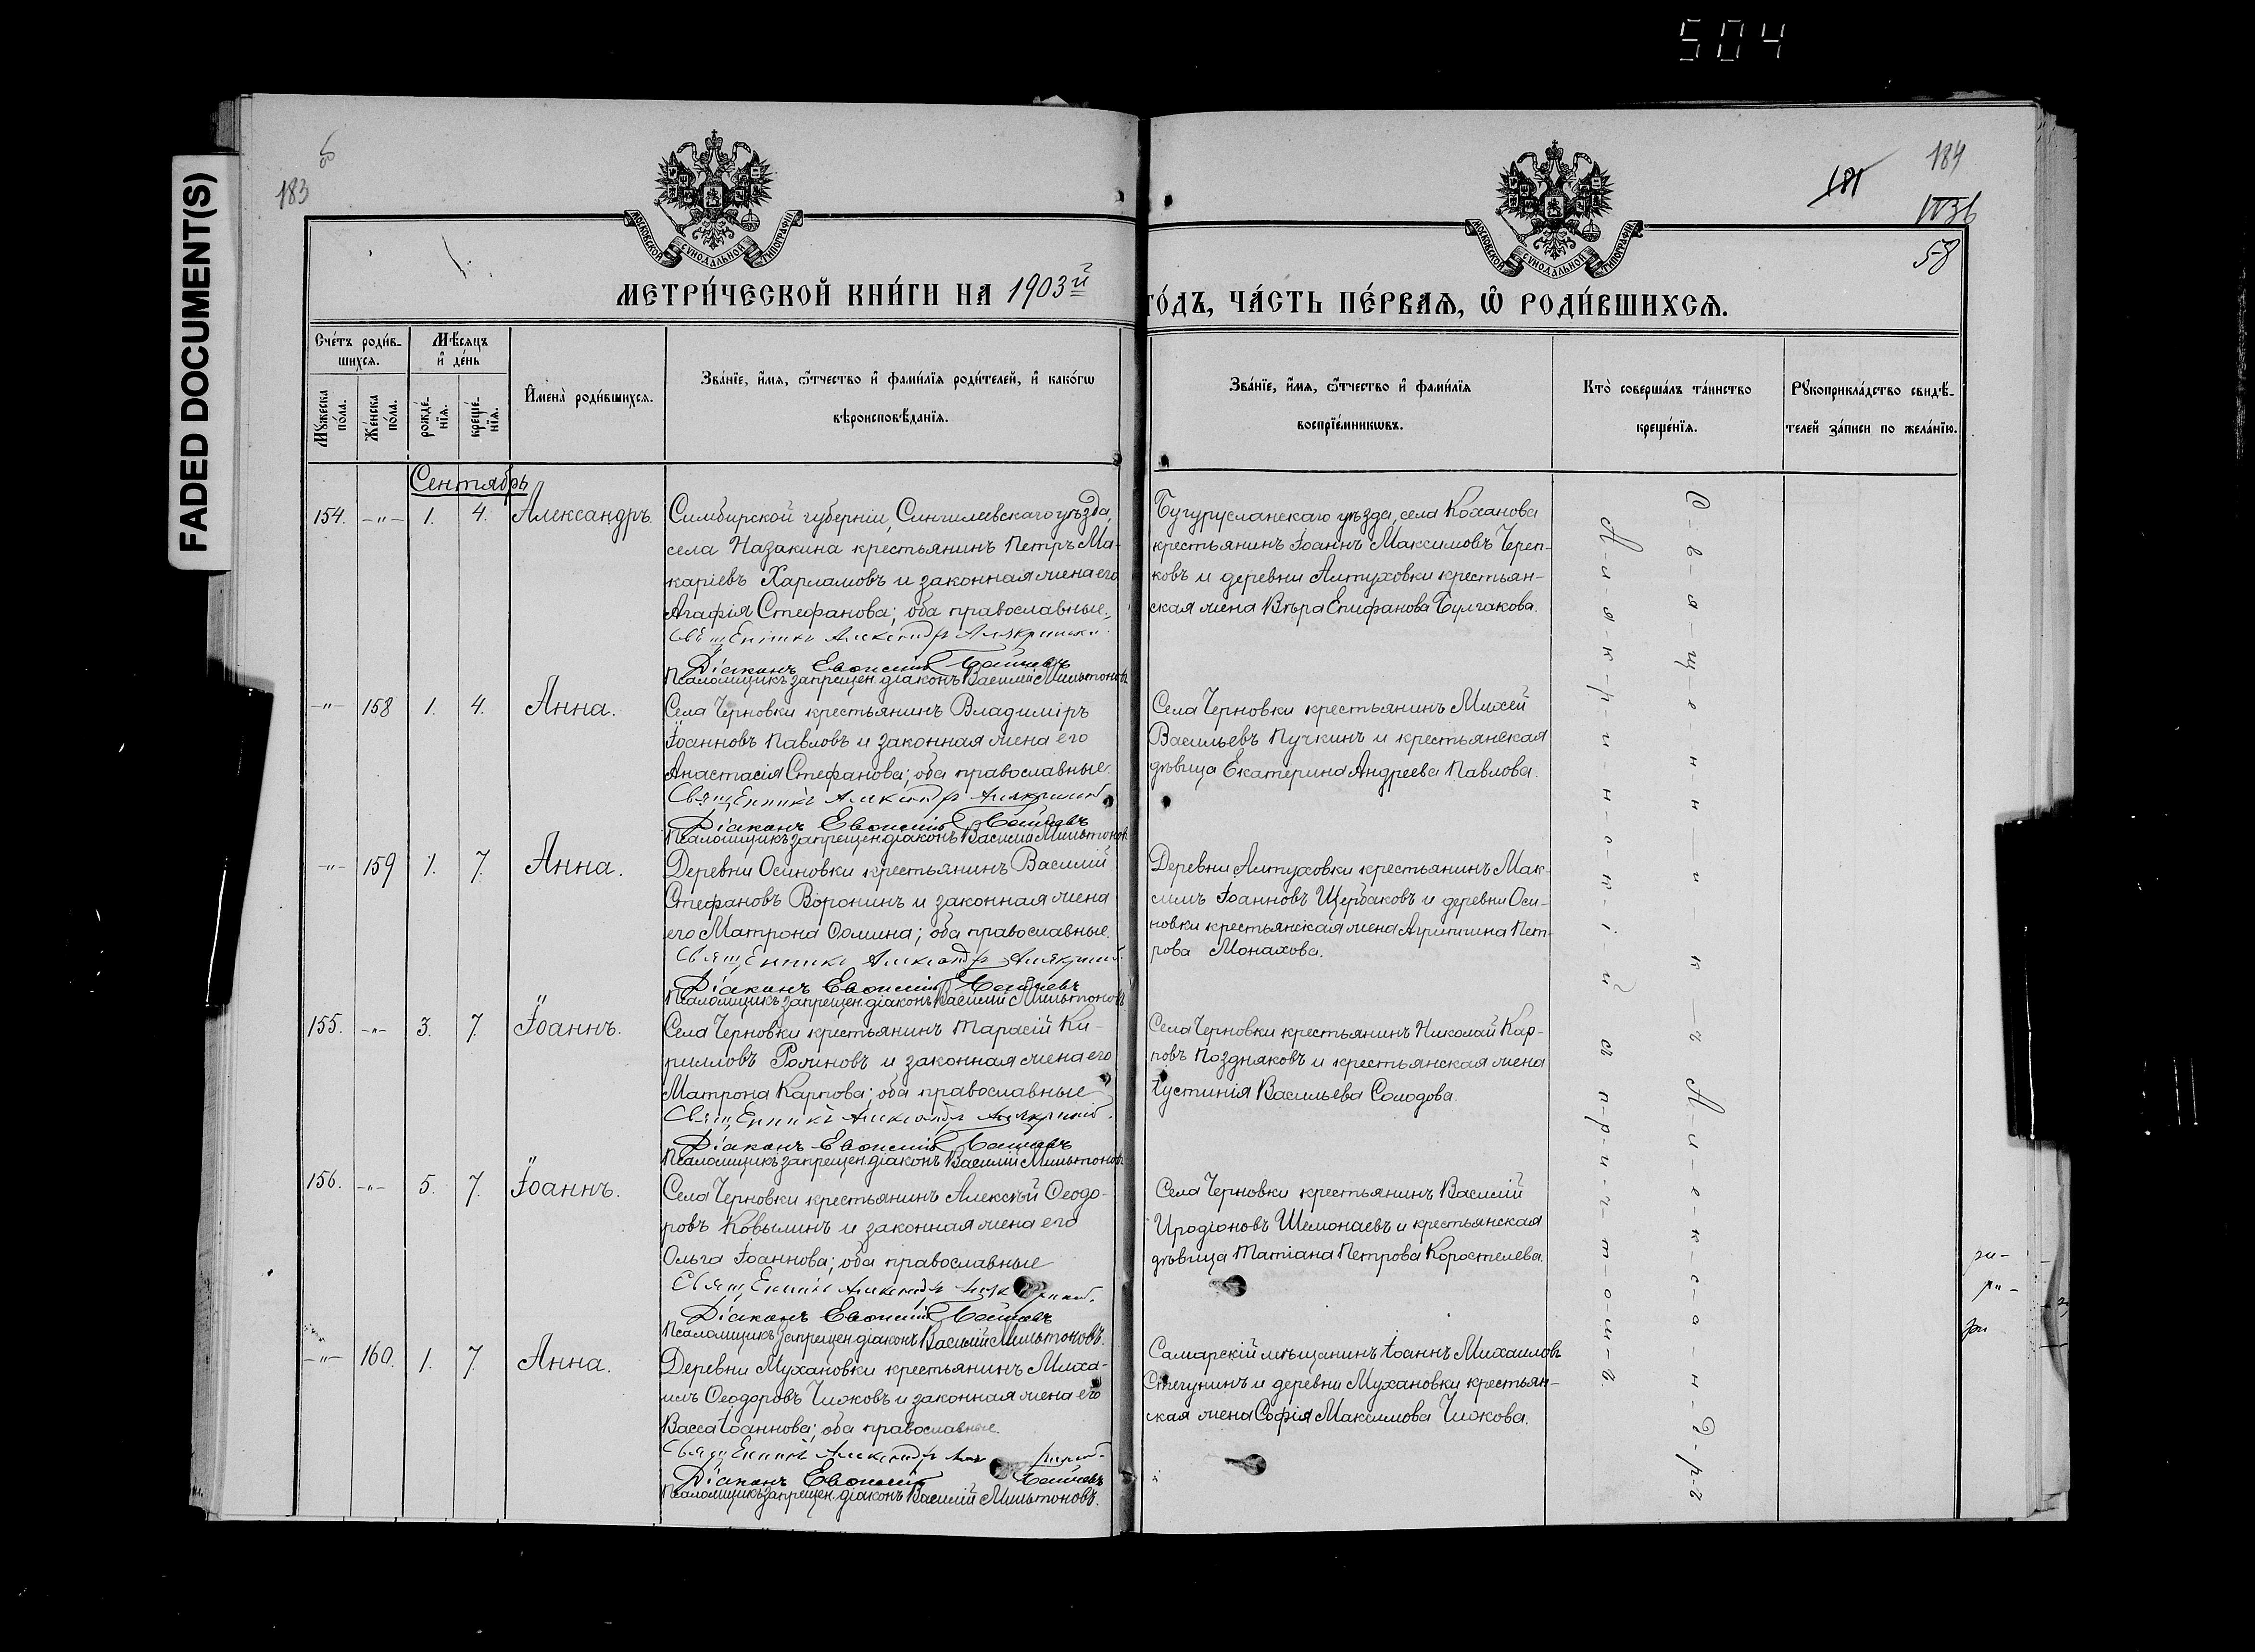 504
FADED DOCUMENT(S)
183
184
181
58
МОСКОВСКОЙ СѴНОДАЛЬНОЙ ТИПОГРАФІИ
МОСКОВСКОЙ СѴНОДАЛЬНОЙ ТИПОГРАФІИ
МЕТРИ́ЧЕСКОЙ КНИ́ГИ НА 1903й
ГО́ДЪ, ЧА́СТЬ ПЕ́РВАѦ, Ѡ҆ РОДИ́ВШИХСѦ.
Сче́тъ роди́в-
шихсѧ.
Мѣ́сѧцъ
и҆ де́нь
Мꙋ́жеска по́ла.
Же́нска по́ла.
рожде́-нїѧ.
креще́-нїѧ.
И҆мена̀ роди́вшихсѧ.
Зва́нїе, и҆́мѧ, ѻ҆́тчество и҆ фами́лїѧ роди́телей, и҆ како́гѡ
вѣроисповѣ́данїѧ.
Зва́нїе, и҆́мѧ, ѻ҆́тчество и҆ фами́лїѧ
воспрїе́мникѡвъ.
Кто̀ соверша́лъ та́инство
креще́нїѧ.
Рꙋкоприкла́дство свидѣ́-
телей за́писи по жела́нїю.
Сентябрь
154. -"- 1. 4. Александръ.
Симбирской губерніи, Сингилеевскаго уѣзда,
села Назакина крестьянинъ Петръ Ма-
каріевъ Харламовъ и законная жена его
Агафія Стефанова; оба православные.
Священникъ Александръ Алякринскій
Діаконъ
Псаломщикъ запрещен. діаконъ Василій Мильтоновъ
Бугурусланскаго уѣзда, села Коханова
крестьянинъ Іоаннъ Максимовъ Череп-
ковъ и деревни Алтуховки крестьян-
ская жена Вѣра Епифанова Булгакова.
-"- 158 1. 4. Анна.
Села Черновки крестьянинъ Владиміръ
Іоанновъ Павловъ и законная жена его
Анастасія Стефанова; оба православные.
Священникъ Александръ Алякринскій
Діаконъ
Псаломщикъ запрещен. діаконъ Василій Мильтоновъ
Села Черновки крестьянинъ Михей
Васильевъ Пучкинъ и крестьянская
дѣвица Екатерина Андреева Павлова.
-"- 159 1. 7. Анна.
Деревни Осиновки крестьянинъ Василій
Стефановъ Воронинъ и законная жена
его Матрона Ѳомина; оба православные.
Священникъ Александръ Алякринскій
Діаконъ
Псаломщикъ запрещен. діаконъ Василій Мильтоновъ
Деревни Алтуховки крестьянинъ Мак-
симъ Іоанновъ Щербаковъ и деревни Оси-
новки крестьянская жена Агриппина Пет-
рова Монахова.
155. -"- 3. 7. Іоаннъ.
Села Черновки крестьянинъ Тарасій Ки-
рилловъ Рожновъ и законная жена его
Матрона Карпова; оба православные
Священникъ Александръ Алякринскій
Діаконъ
Псаломщикъ запрещен. діаконъ Василій Мильтоновъ
Села Черновки крестьянинъ Николай Кар-
повъ Поздняковъ и крестьянская жена
Іустинія Васильева Солодова.
156. -"- 5. 7. Іоаннъ.
Села Черновки крестьянинъ Алексѣй Ѳеодо-
ровъ Ковылинъ и законная жена его
Ольга Іоаннова; оба православные
Священникъ Александръ
Діаконъ
Псаломщикъ запрещен. діаконъ Василій Мильтоновъ.
Села Черновки крестьянинъ Василій
Иродіоновъ Шемонаевъ и крестьянская
дѣвица Татіана Петрова Коростелева.
-"- 160. 1. 7. Анна.
Деревни Мухановки крестьянинъ Миха-
илъ Ѳеодоровъ Чижовъ и законная жена его
Васса Іоаннова; оба православные.
Священникъ Александръ
Діаконъ
Псаломщикъ запрещен. діаконъ Василій Мильтоновъ.
Самарскій мѣщанинъ Іоаннъ Михаиловъ
Стегунинъ и деревни Мухановки крестьян-
ская жена Софія Максимова Чижова.
С-в-я-щ-е-н-н-и-к-ъ А-л-е-к-с-а-н-д-р-ъ
А-л-я-к-р-и-н-с-к-і-й съ п-р-и-ч-т-о-м-ъ.